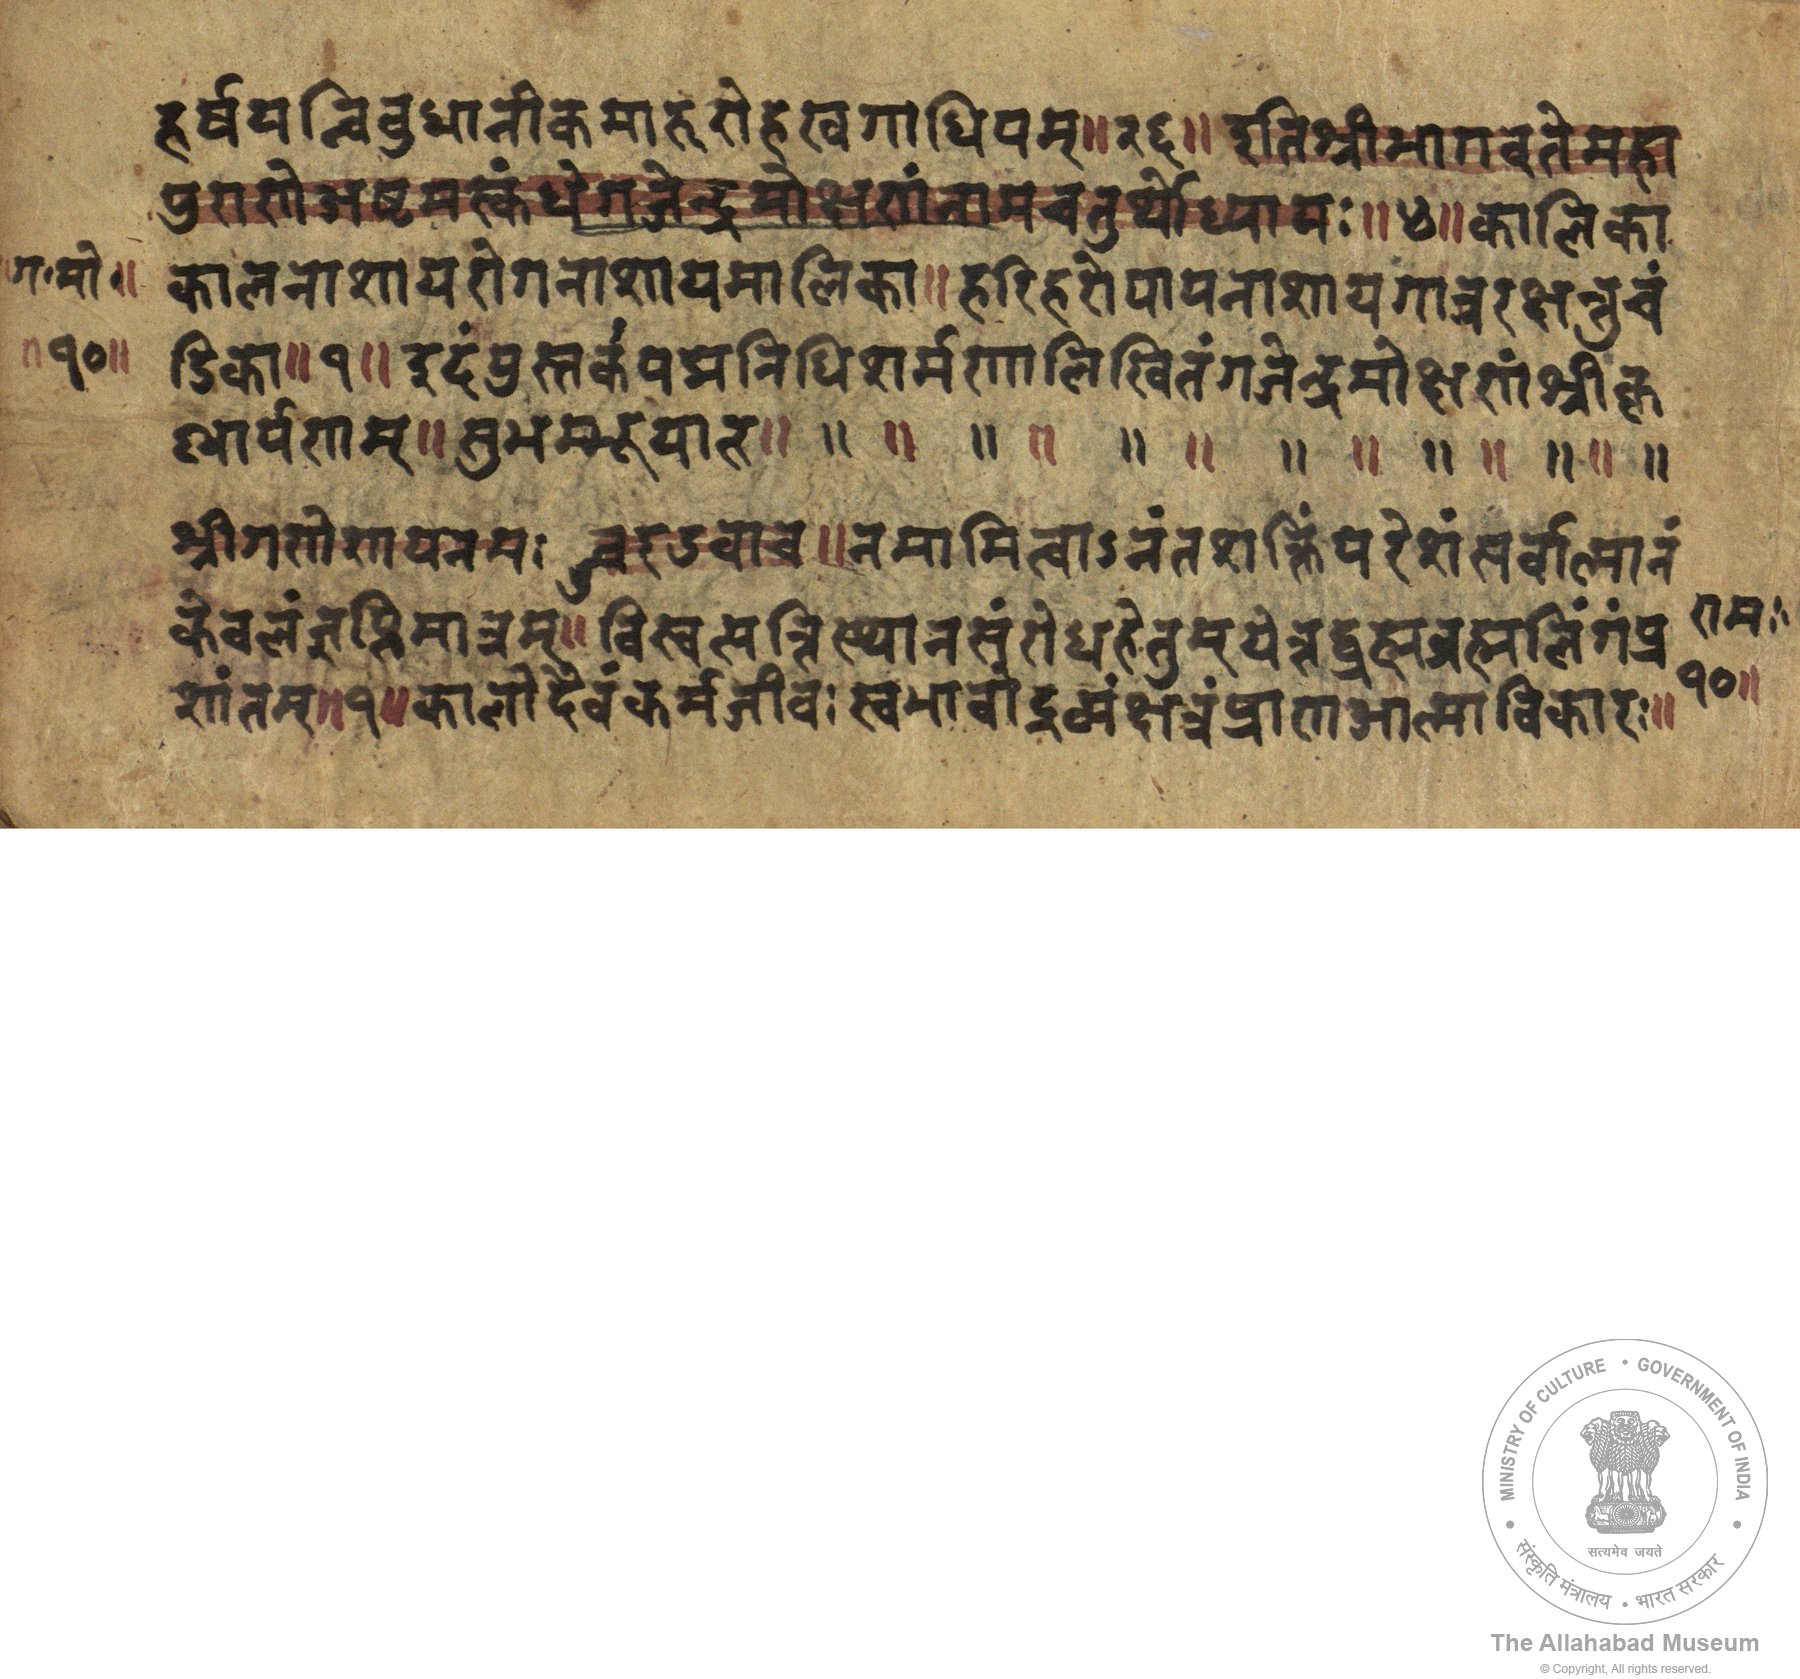 हर्षयन्विवुधानीकमारुरोहखगाधिपम्॥२६॥इतिश्रीभागवतेमहा
पुराणेअष्टमस्कंधेगजेन्द्रमोक्षणंनामचतुर्थोध्यायः॥४॥कालिका
ग॰मो॰॥
कालनाशायरोगनाशायमालिका॥हरिहरोपापनाशायगात्ररक्षन्तुचं
॥१०॥
डिका॥१॥इदंपुस्तकंपद्मनिधिशर्मणालिखितंगजेन्द्रमोक्षणंश्रीकृ
ष्णार्पणम्॥सुभमस्तूयात॥ ॥ ॥ ॥ ॥ ॥ ॥ ॥ ॥ ॥ ॥ ॥ ॥ ॥
श्रीगणेशायनमः ज्वरउवाच॥नमामित्वाऽनंतशक्तिंपरेशंसर्वात्मानं
केवलंज्ञप्तिमात्रम्॥विस्वत्पत्तिस्थानसंरोधहेतुम्यत्तद्ब्रह्मब्रह्मलिंगंप्र
राम॰
शांतम्॥१॥कालोदैवंकर्मजीवःस्वभावोद्रव्यंक्षत्रंप्राणआत्माविकारः॥
१०॥
MINISTRY OF CULTURE • GOVERNMENT OF INDIA
सत्यमेव जयते
संस्कृति मंत्रालय • भारत सरकार
The Allahabad Museum
© Copyright, All rights reserved.